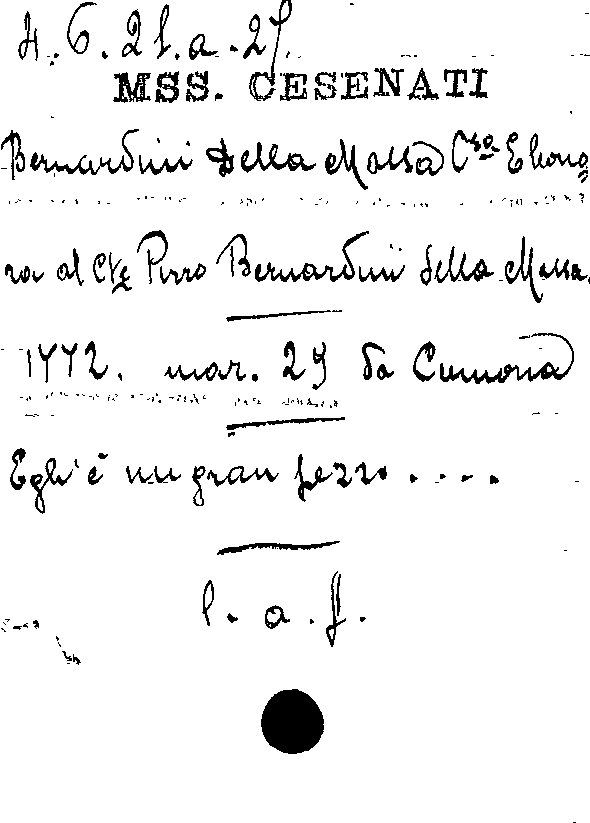 4.6.21.a.27.
MSS. CESENATI
Bernardini Della Massa C.sa Eleono
ra al Cte Pirro Bernardini della Massa.
1772. mar. 29 da Cumona
Egli è un gran pezzo . . . .
l. a. f.